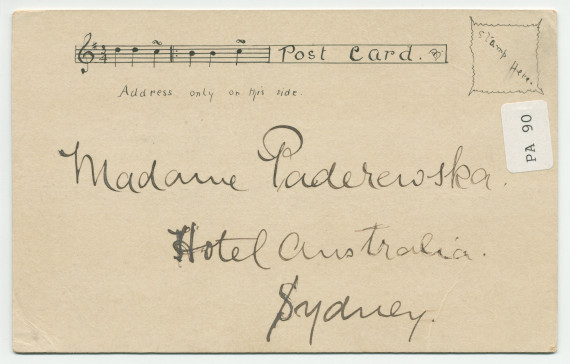 Post Card.
Stamp
Here.
Address only on this side.
PA 90
Madame Paderewska.
Hotel Australia.
Sydney.